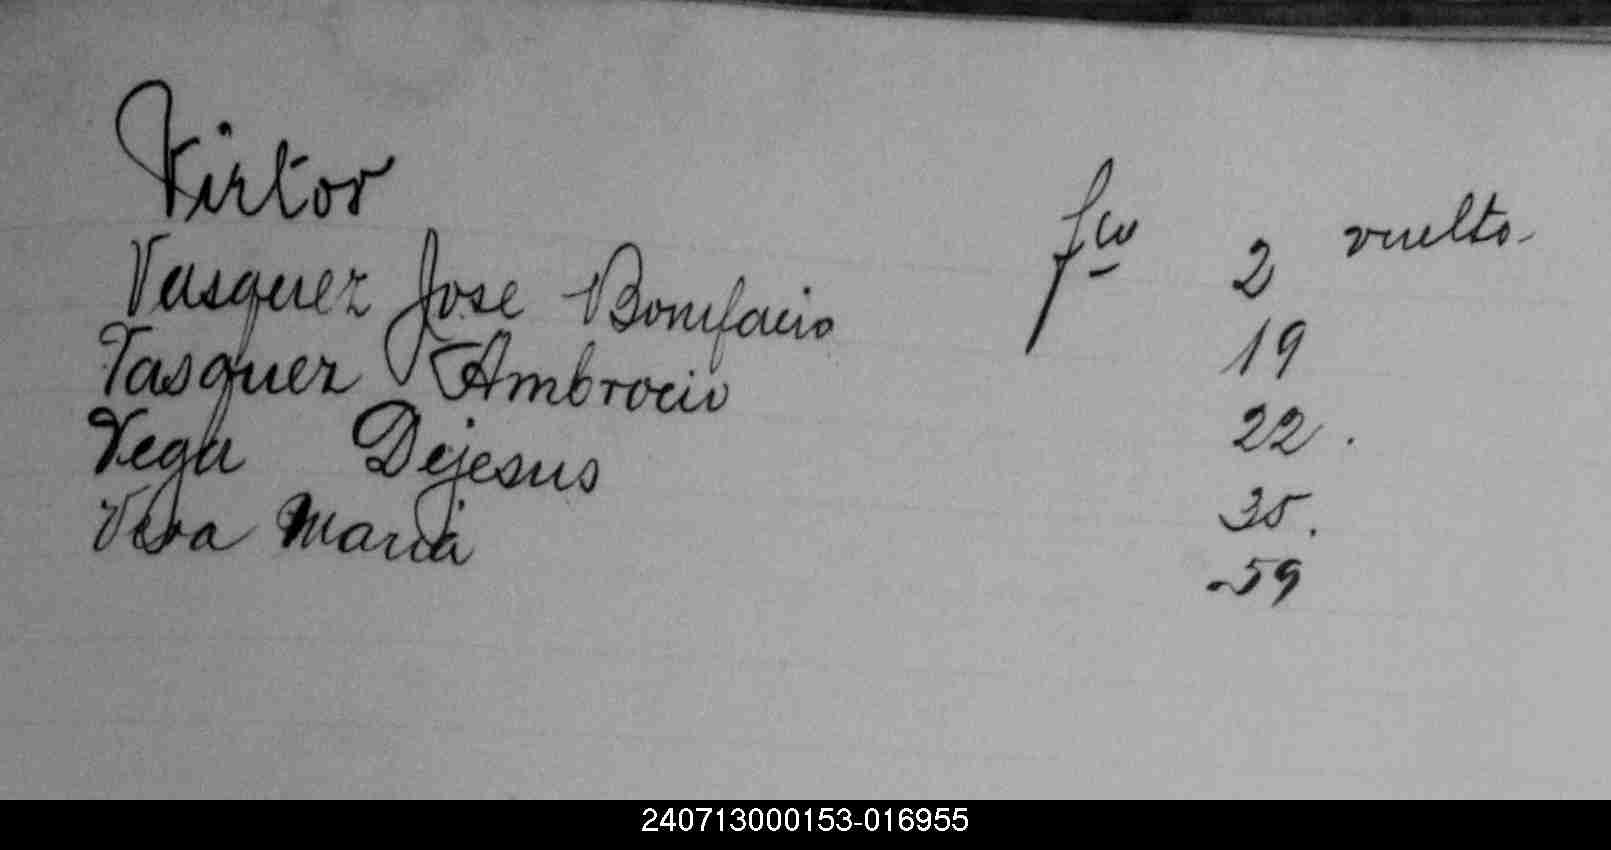 Virtor
Vasquez Jose Bonifacio fco 2 vuelto-
Vasquez Ambrocio 19
Vega Dejesus 22.
Vera Maria 35.
59
240713000153-016955